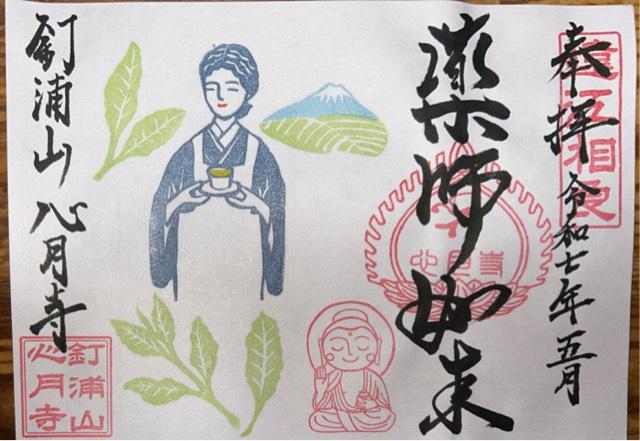 奉拝 令和七年五月
遠江相良
薬師如来
心月寺
釘浦山 心月寺
釘浦山
心月寺